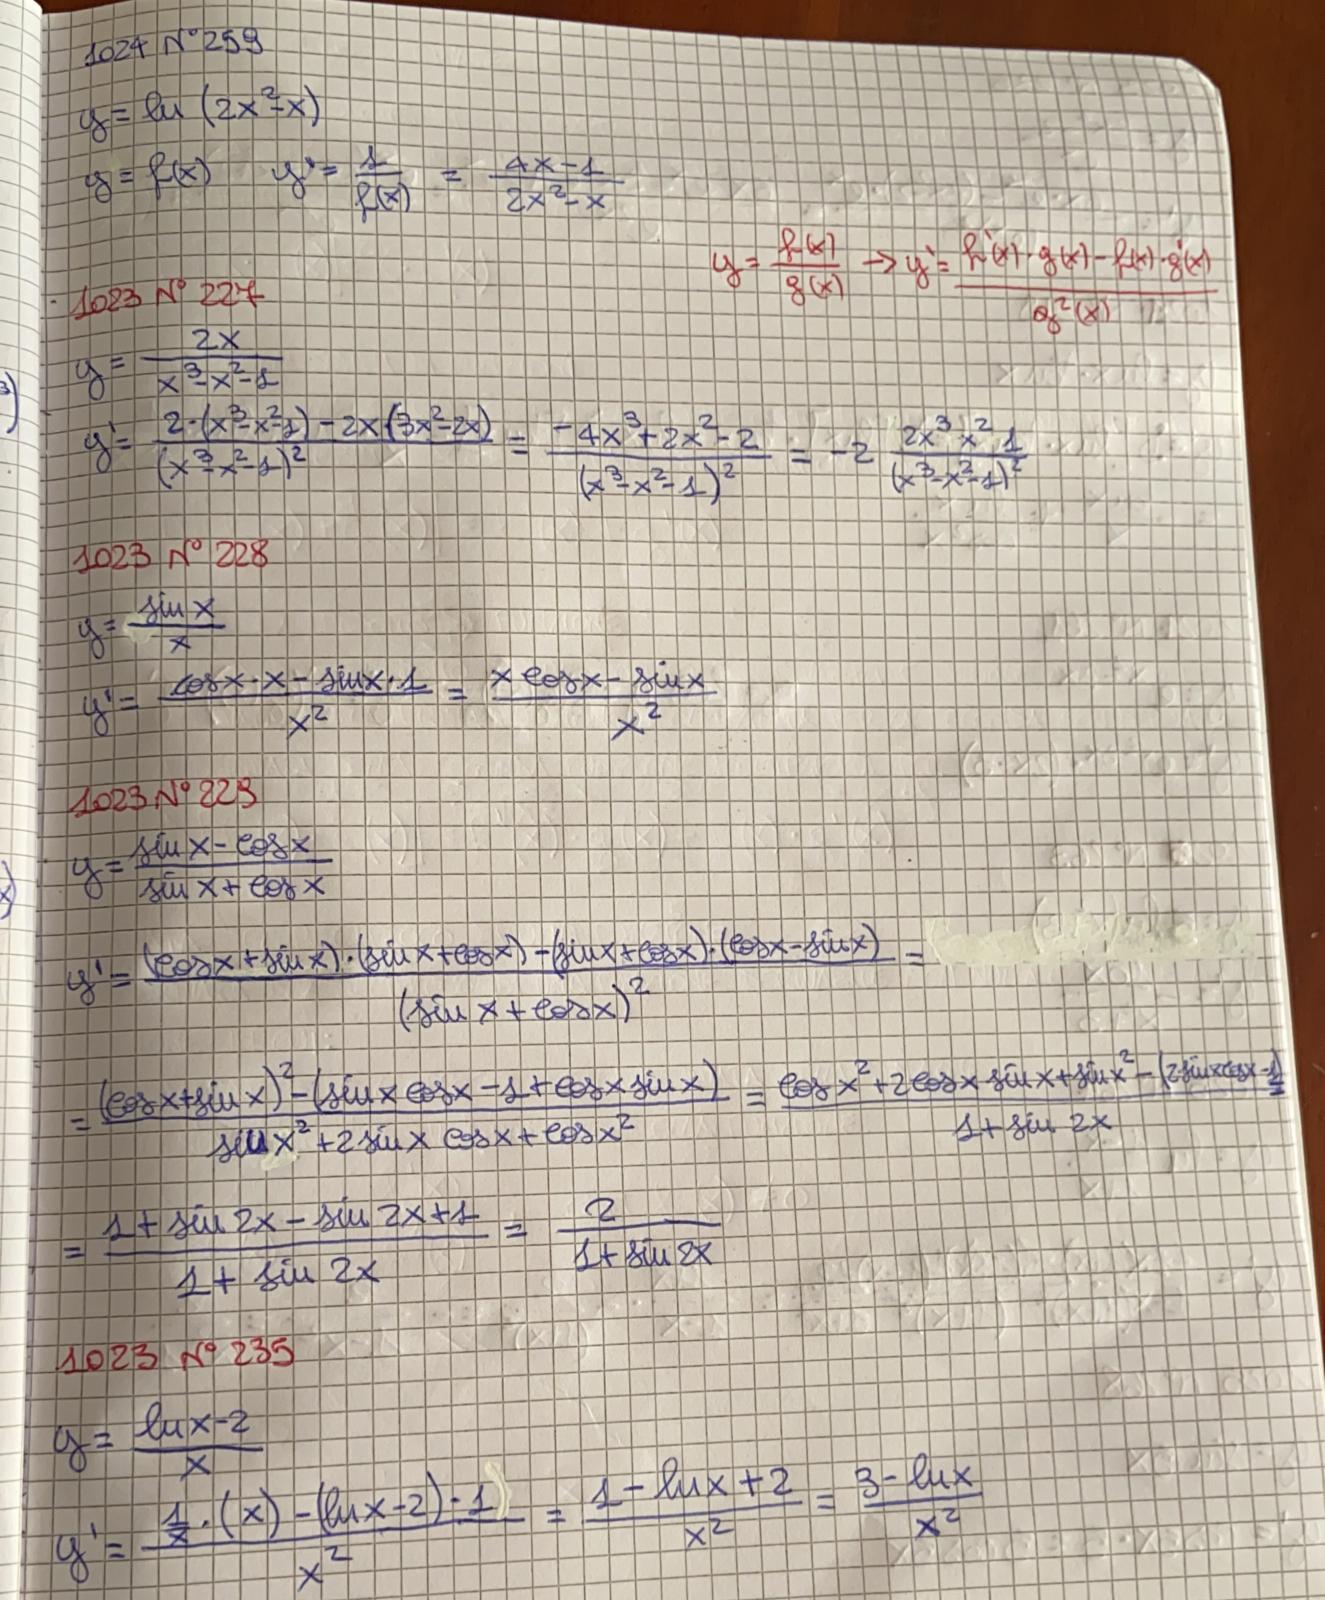 1024 N°259
y = ln (2x²-x)
y = f(x) y' = 1/f(x) = (4x-1)/(2x²-x)
y = f(x)/g(x) → y' = (f'(x)·g(x) - f(x)·g'(x))/g²(x)
1023 N° 227
y = 2x/(x³-x²-1)
y' = (2·(x³-x²-1) - 2x(3x²-2x))/(x³-x²-1)² = (-4x³+2x²-2)/(x³-x²-1)² = -2 (2x³ x² 1)/(x³-x²-1)²
1023 N° 228
y = sin x/x
y' = (cosx·x - sinx·1)/x² = (x cosx - sinx)/x²
1023 N° 229
y = (sin x - cos x)/(sin x + cos x)
y' = ((cosx + sin x)·(sin x + cosx) - (sinx + cosx)·(cosx - sinx))/(sin x + cosx)² =
= ((cosx+sin x)² - (sin x cosx - 1 + cosx sin x))/(sin x² + 2 sin x cosx + cos x²) = (cos x² + 2cosx sin x + sin x² - (2sinxcosx - 1))/(1 + sin 2x) =
= (1 + sin 2x - sin 2x + 1)/(1 + sin 2x) = 2/(1 + sin 2x)
1023 N° 235
y = (ln x - 2)/x
y' = (1/x·(x) - (ln x - 2)·1)/x² = (1 - ln x + 2)/x² = (3 - ln x)/x²